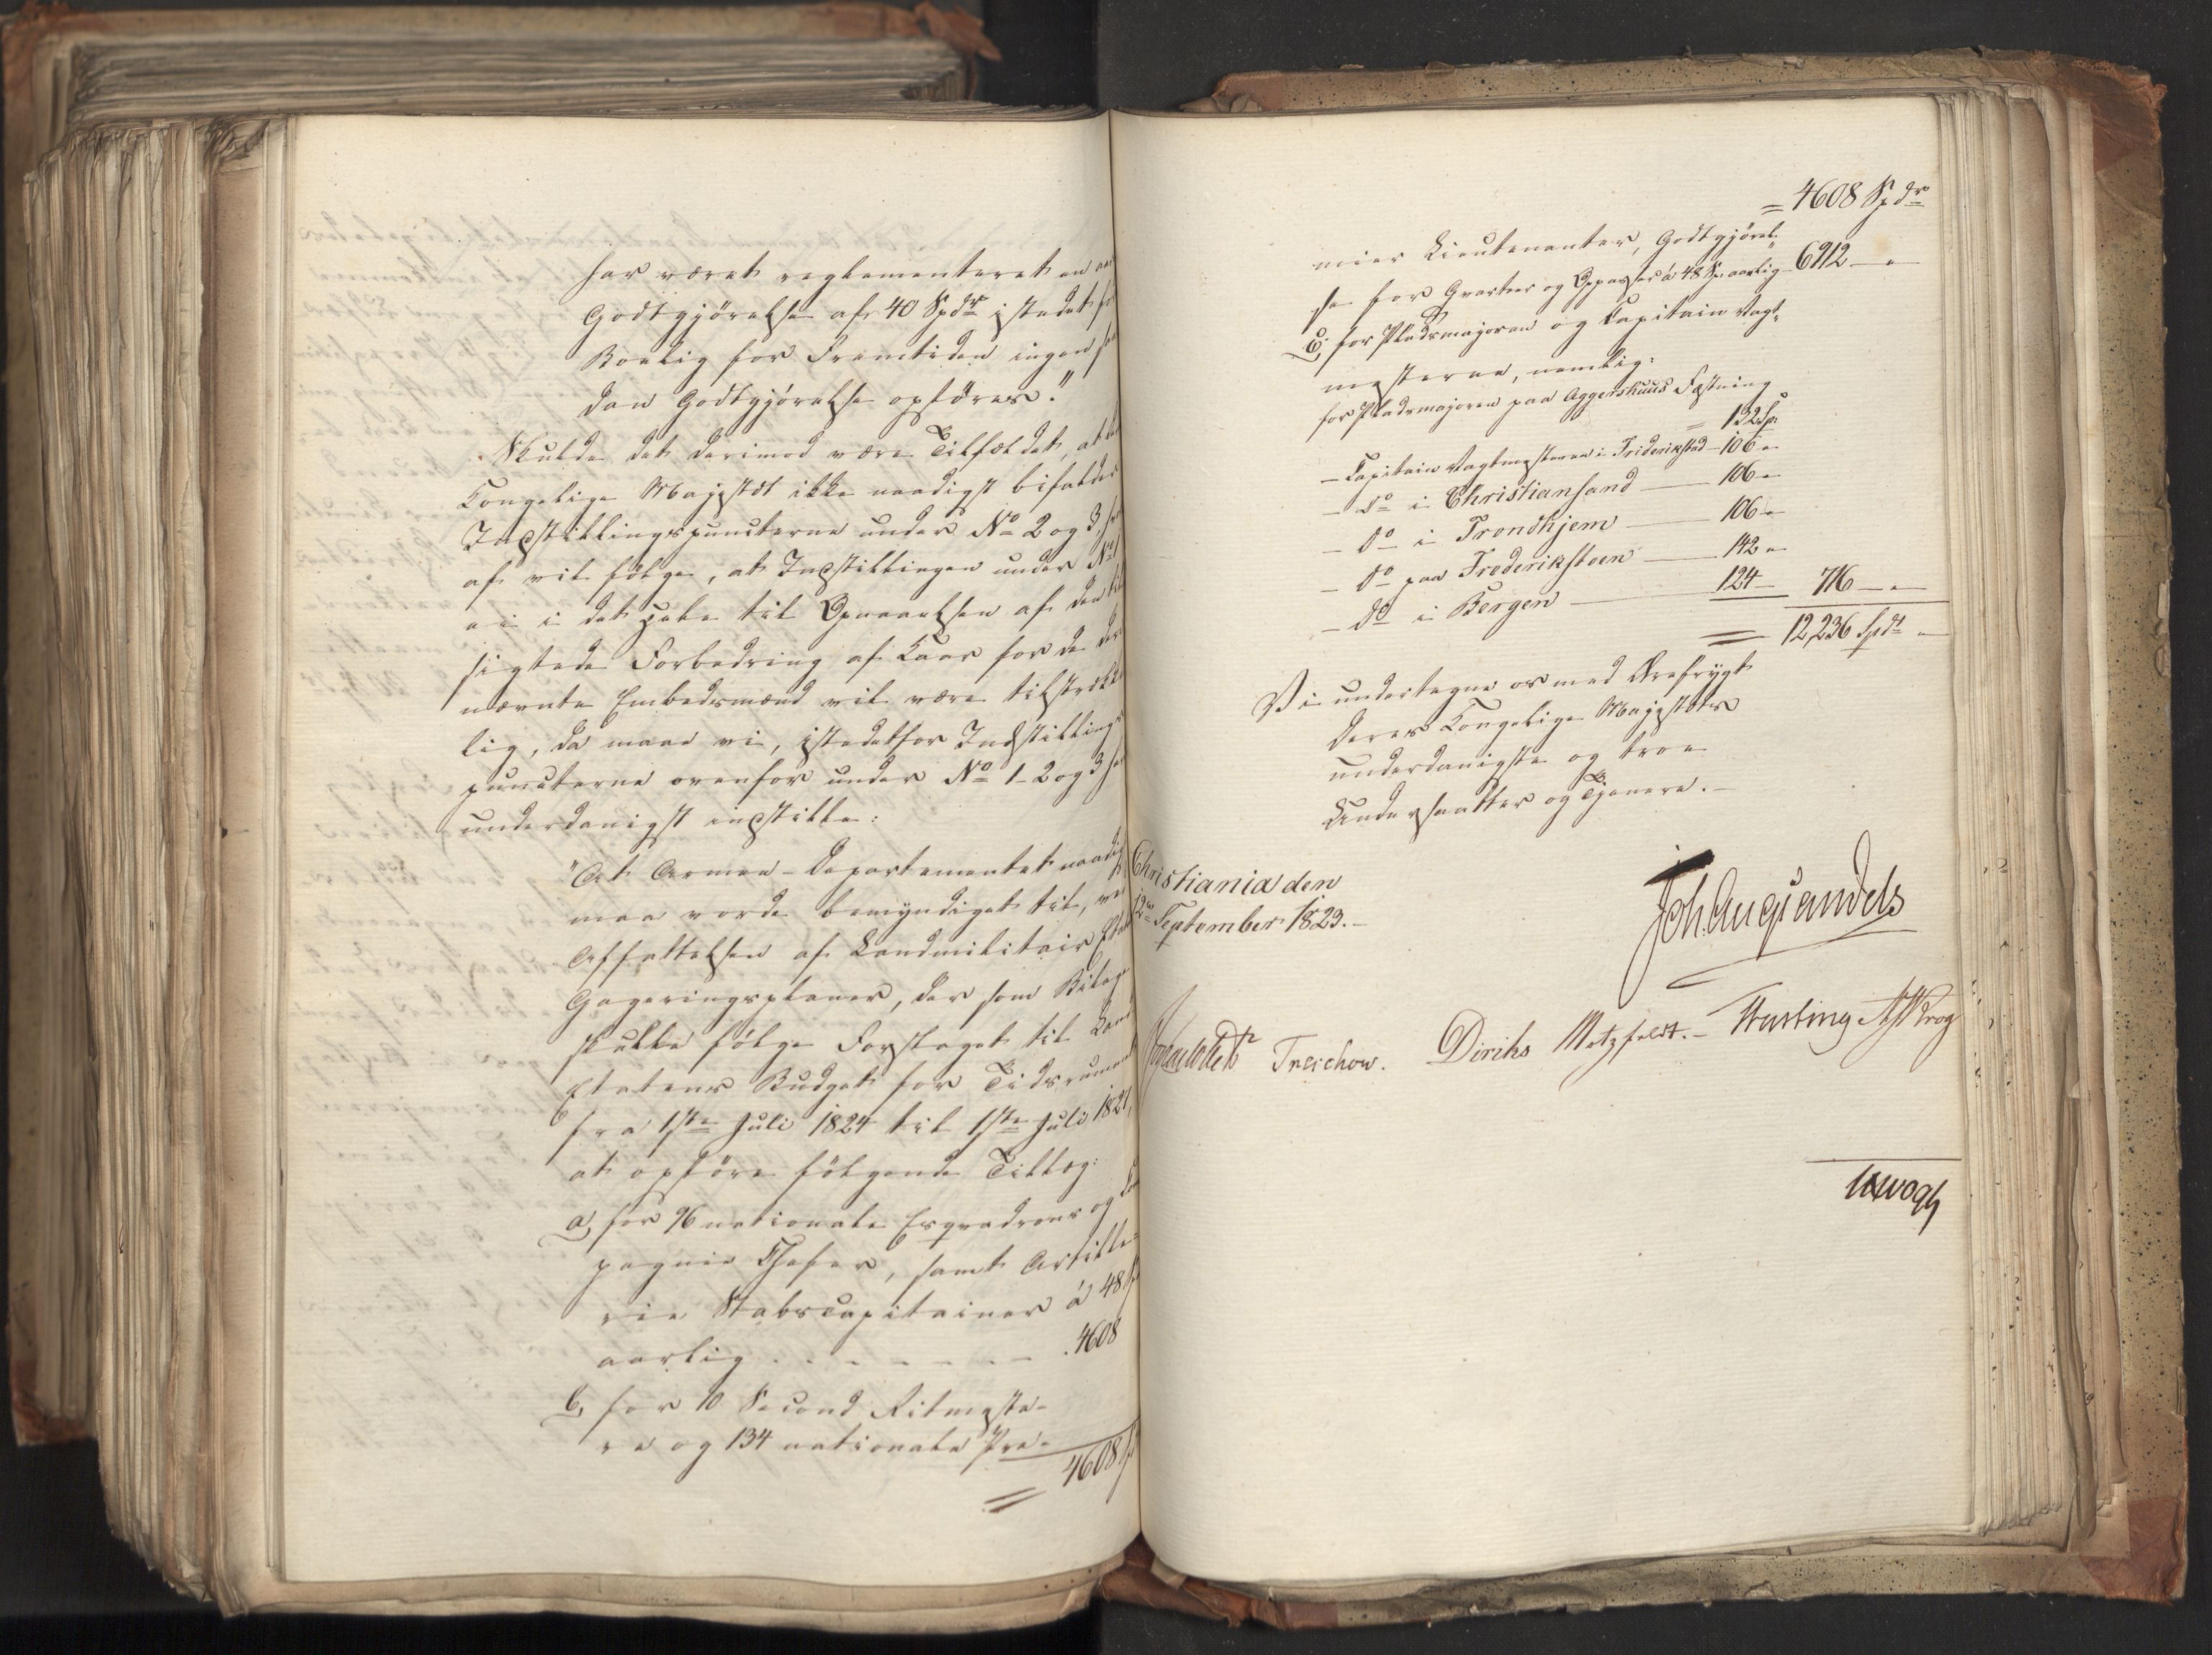 har været reglementeret en aar
Godtgjörelse af 40 Spdr istedet for
Boelig for Fremtiden ingen saa
dan Godtgjörelse opföres."
Skulde det derimod være Tilfældet, at
Kongelige Majestæt ikke naadigst bifalder
Indstillingspuncterne under No 2 og 3,
af vil fölge, at Indstillingen under No 1
ei i det hele til Opnaaelsen af den til
sigtede Forbedring af Kaar for de der
nævnte Embedsmænd vil være tilstrække
lig, da maae vi, istedetfor Indstillings
puncterne ovenfor under No 1-2 og 3 her
underdanigst indstille:
"At Armee-Departementet naadigst
maa vorde bemyndiget til, ved
Affattelsen af Landmilitair Etatens
Gageringsplaner, der som Bilage
skulle fölge Forslaget til Land
Etatens Budget for Tidsrummet
fra 1ste Juli 1824 til 1ste Juli 1827,
at opföre fölgende Tillæg:
a, for 96 nationale Esqvadrons og Com
pagnie Chefer, samt Artille-
rie Stabscapitainer á 48 Sp
aarlig . . - - - - - . 4608
b, for 10 Second Ritmeste-
re og 134 nationale Pre-
= 4608 Sp
= 4608 Spdr
mier Lieutenanter, Godtgjörel-
se for Qvarteer og Oppasser á 48 Sp. aarlig - 6912 — "
C, for Pladsmajoren og Capitain Vagt-
mesterne, nemlig:
for Pladsmajoren paa Aggershuus Fæstning
= 132 Sp:
- Capitain Vagtmesteren i Friderikstad - 106 "
- do i Christiansand — 106 "
- do i Trondhjem — 106 "
- do paa Frederiksteen — 142 "
- do i Bergen — 124 — 716 — "
= 12,236 Spdr "
Vi undertegne os med Ærefrygt
Deres Kongelige Majestæts
underdanigste og troe
Undersaatter og Tjenere. -
Christiania den
12te September 1823. -
Joh. Aug. Sandels
Sommerhielm Treschow. Diriks Motzfeldt. - Fasting A Krog
Vogt